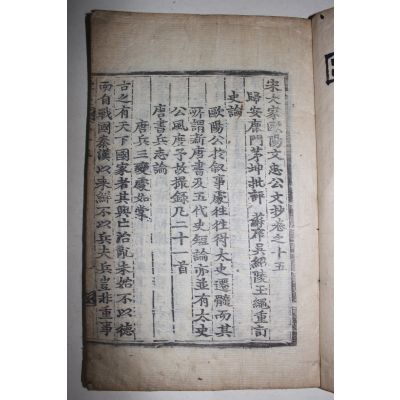 宋大家歐陽文忠公文抄卷之十五
歸安鹿門茅坤批評 蘇庠吳紹陵王繩重訂
史論
歐陽公於叙事處徃徃得太史遷髓而其
所謂新唐書及五代史短論亦並有太史
公風度予故撮錄凡二十一首
唐書兵志論
唐兵三變處如掌
古之有天下國家者其興亡治亂未始不以德
而自戰國秦漢以來鮮不以兵夫兵豈非重事